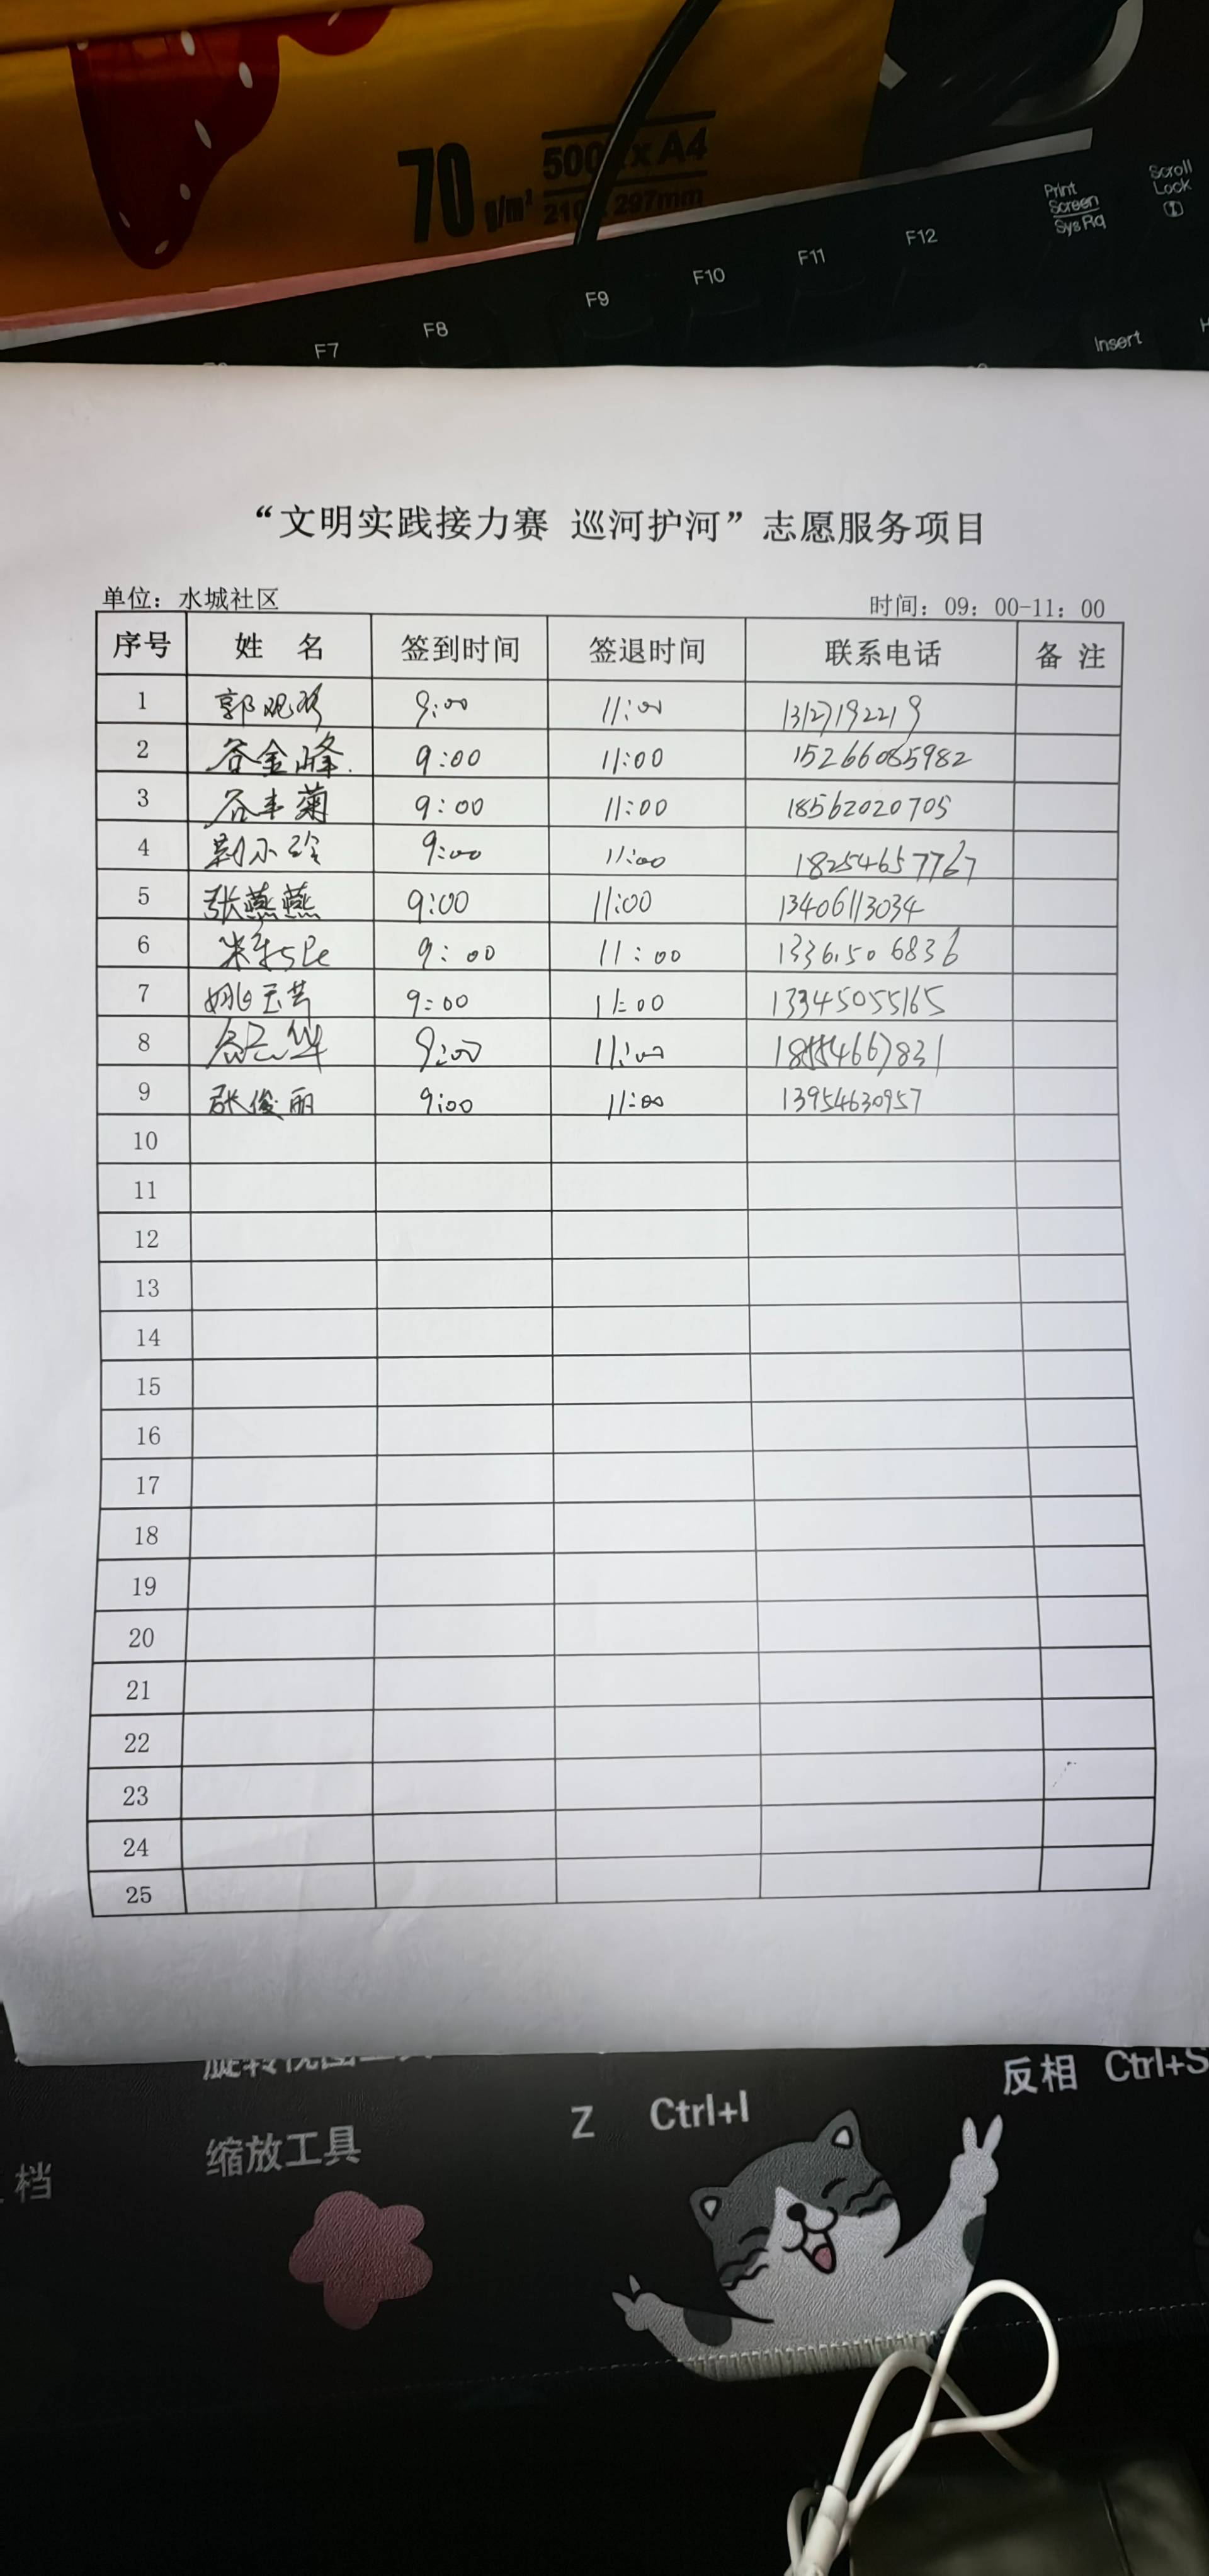 70 g/m²
500 x A4
297mm
Print Screen SysRq
Scroll Lock
F12
F11
F10
F9
F8
F7
Insert
“文明实践接力赛 巡河护河”志愿服务项目
单位：水城社区 时间：09：00-11：00
序号 姓 名 签到时间 签退时间 联系电话 备 注
1 郭 9:00 11:00 13127192219
2 谷金峰. 9:00 11:00 15266085982
3 谷丰菊 9:00 11:00 18562020705
4 9:00 11:00 18254657767
5 张燕燕 9:00 11:00 13406113034
6 9:00 11:00 13361506836
7 姚玉芳 9:00 11:00 13345055165
8 9:00 11:00 18554667831
9 张俊丽 9:00 11:00 13954630957
10
11
12
13
14
15
16
17
18
19
20
21
22
23
24
25
反相 Ctrl+S
Z Ctrl+I
缩放工具
档